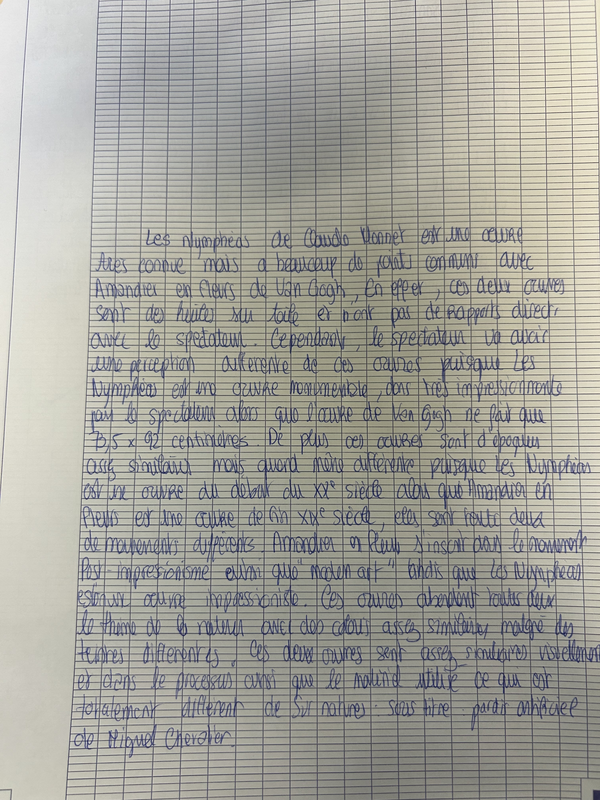 Les Nymphéas de Claude Monnet est une oeuvre
très connue mais a beaucoup de points communs avec
Amandier en fleurs de Van Gogh, En effet, ces deux oeuvres
sont des huiles sur toile et n'ont pas de rapports direct
avec le spectateur. Cependant, le spectateur va avoir
une perception différente de ces oeuvres puisque Les
Nymphéas est une oeuvre monumentale, donc très impressionnante
pour le spectateur alors que l'oeuvre de Van Gogh ne fait que
73,5 x 92 centimètres. De plus ces oeuvres sont d'époques
assez similaires mais quand même différente puisque Les Nymphéas
est une oeuvre du début du XXe siècle alors que Amandier en
fleurs est une oeuvre de fin XIXe siècle, elles sont toute deux
de mouvements différents. Amandier en fleurs s'inscrit dans le mouvement
Post-impressionisme ainsi que "modern art" tandis que Les Nymphéas
est une oeuvre impressioniste. Ces oeuvres abordent toutes deux
le thème de la nature avec des colours assez similaires malgré des
teintes différentes. Ces deux oeuvres sont assez similaires visuellement
et dans le processus ainsi que le matériel utilisé ce qui est
totalement différent de Sur natures sous titre paradis artificiel
de Miguel Chevalier.